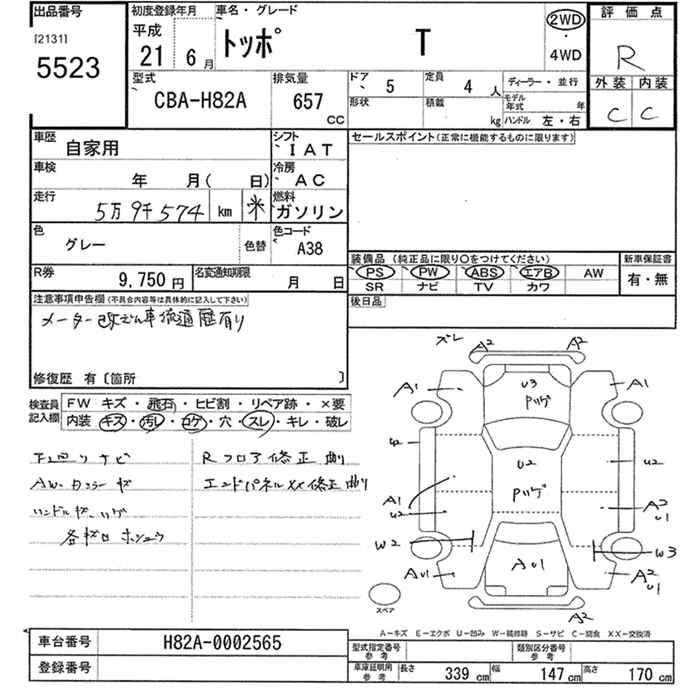 出品番号 初度登録年月 車名・グレード 評価点
[2131] 平成 トッポ T 2WD R
5523 21 年 6 月 4WD
型式 排気量 ドア 5 定員 4 人 ディーラー・並行 外装 内装
CBA-H82A 657 CC 形状 積載 kg モデル年式 年 ハンドル 左・右 C C
車歴 自家用 シフト IAT セールスポイント(正常に機能するものに限ります)
車検 年 月( 日) 冷房 AC
走行 5万9千574 km 米 燃料 ガソリン
色 グレー 色替 色コード A38
装備品(純正品に限り○をつけてください) 新車保証書
R券 9,750円 名変通知期限 月 日 PS PW ABS エアB AW 有・無
SR ナビ TV カワ
注意事項申告欄(不具合内容等は具体的に記入して下さい) 後日品
メーター改ざん車流通歴有り
修復歴 有〔箇所 〕
検査員記入欄 FW キズ・飛石・ヒビ割・リペア跡・×要
内装 キズ・汚レ・コゲ・穴・スレ・キレ・破レ
下廻りサビ Rフロア修正 曲り
エンドパネルXX修正曲り
ズレ A2 A2
A1 U3 A1
ハゲ
U2 U2 U2
ハゲ
A1 A2
U2 U1
W2 W3
AU1 AU1 A2
U1
A2
スペア
A−キズ E−エクボ U−凹み W−補修跡 S−サビ C−腐食 XX−交換済
車台番号 H82A-0002565 型式指定番号 参考 類別区分番号 参考
登録番号 車庫証明用 参考 長さ 339 cm 幅 147 cm 高さ 170 cm